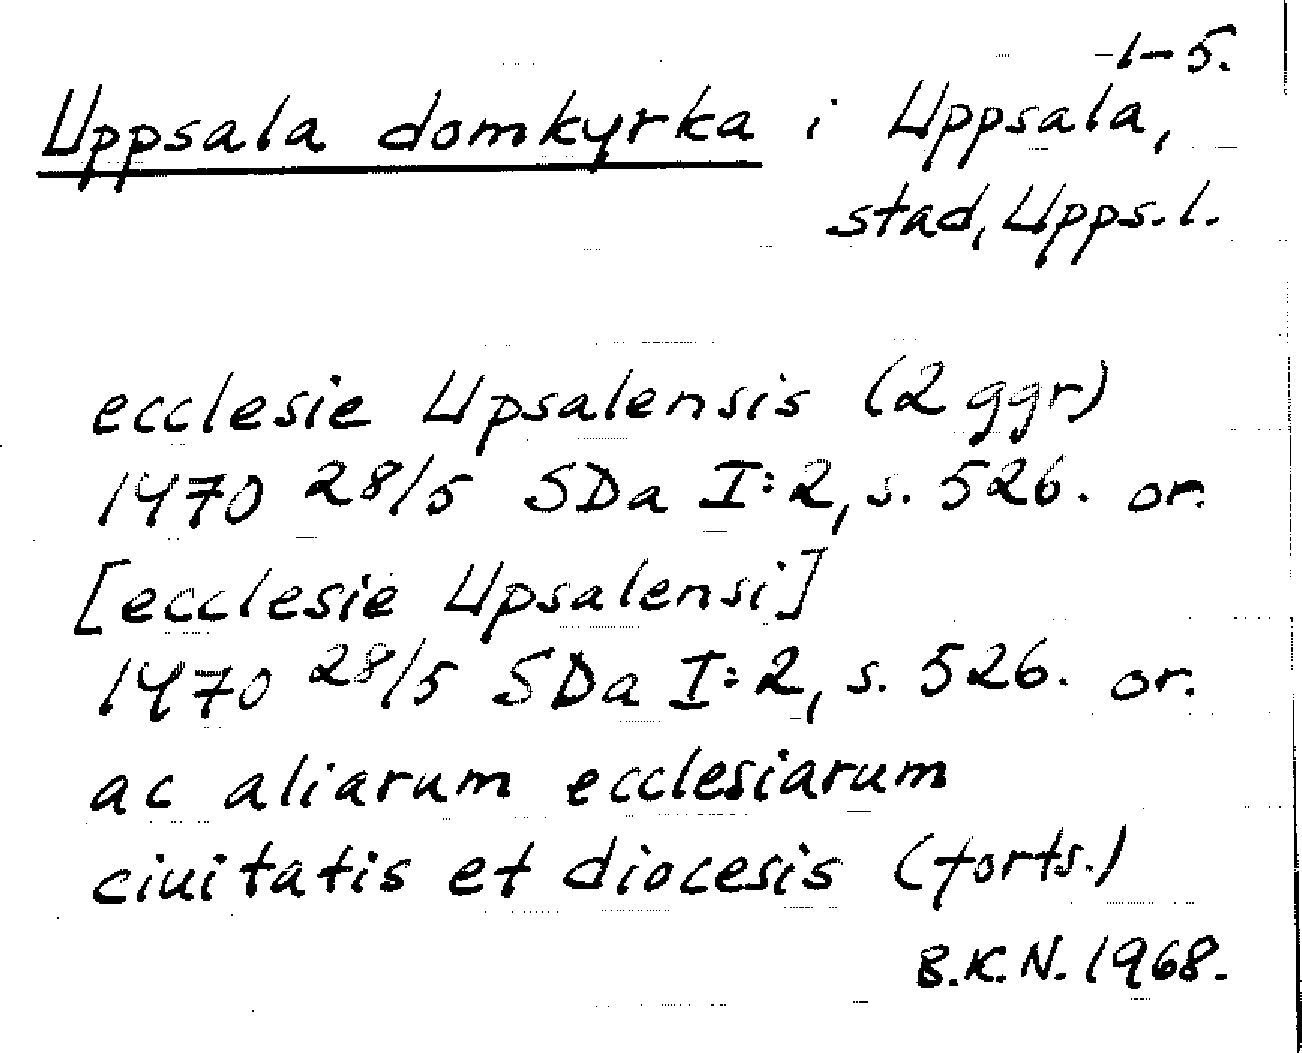 -1-5.
Uppsala domkyrka i Uppsala,
stad, Upps.l.
ecclesie Upsalensis (2 ggr)
1470 28/5 SDa I:2, s. 526. or.
[ecclesie Upsalensi]
1470 28/5 SDa I:2, s. 526. or.
ac aliarum ecclesiarum
ciuitatis et diocesis (forts.)
B.K.N. 1968.